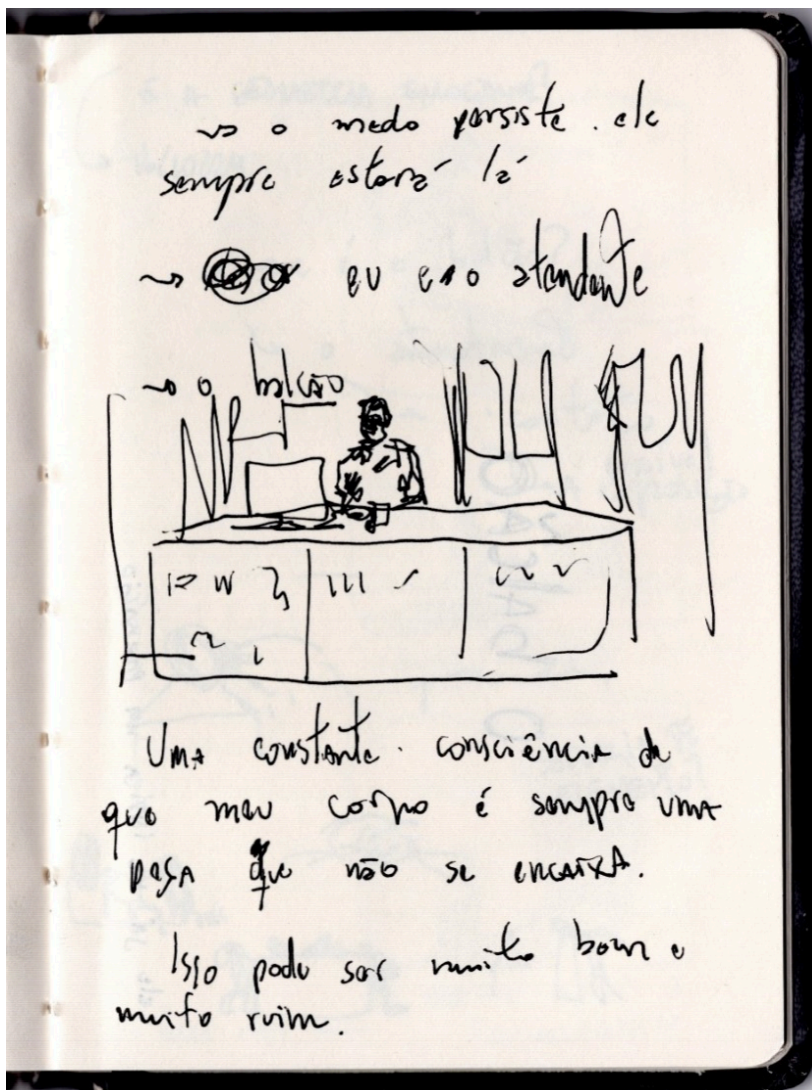 → o medo persiste. ele
sempre estará lá
→ eu e o atendente
→ o balcão
Uma constante. consciência de
que meu corpo é sempre uma
peça que não se encaixa.
Isso pode ser muito bom e
muito ruim.